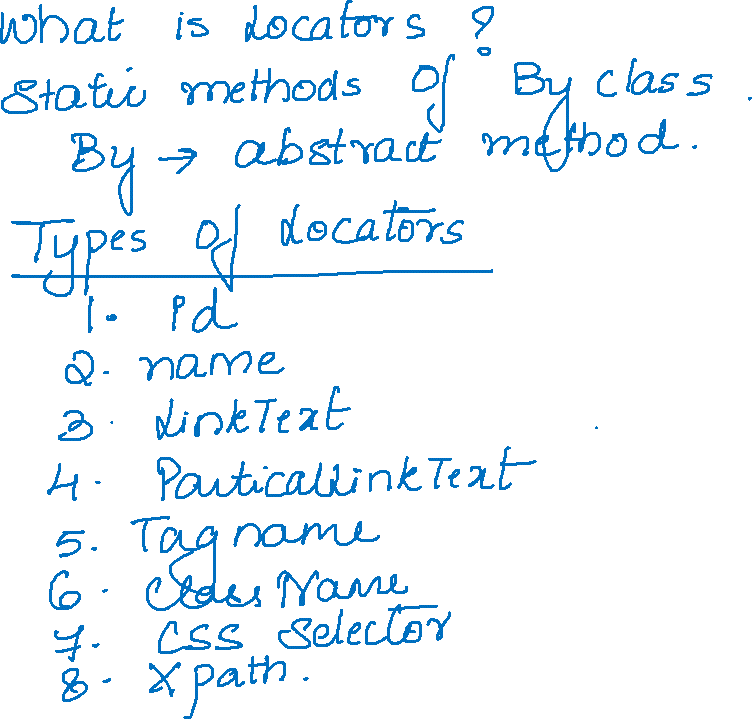 What is Locators ?
Static methods of By class.
By → abstract method.
Types of Locators
1. id
2. name
3. LinkText
4. ParticalLinkText
5. Tagname
6. ClassName
7. CSS Selector
8. Xpath.